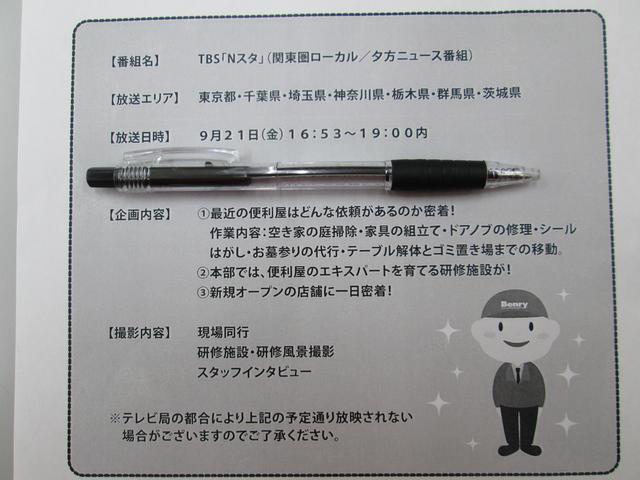 【番組名】 TBS「Nスタ」(関東圏ローカル／夕方ニュース番組)
【放送エリア】 東京都・千葉県・埼玉県・神奈川県・栃木県・群馬県・茨城県
【放送日時】 9月21日(金)16：53～19：00内
【企画内容】 ①最近の便利屋はどんな依頼があるのか密着！
作業内容：空き家の庭掃除・家具の組立て・ドアノブの修理・シール
はがし・お墓参りの代行・テーブル解体とゴミ置き場までの移動。
②本部では、便利屋のエキスパートを育てる研修施設が！
③新規オープンの店舗に一日密着！
Benry
【撮影内容】 現場同行
研修施設・研修風景撮影
スタッフインタビュー
※テレビ局の都合により上記の予定通り放映されない
場合がございますのでご了承ください。